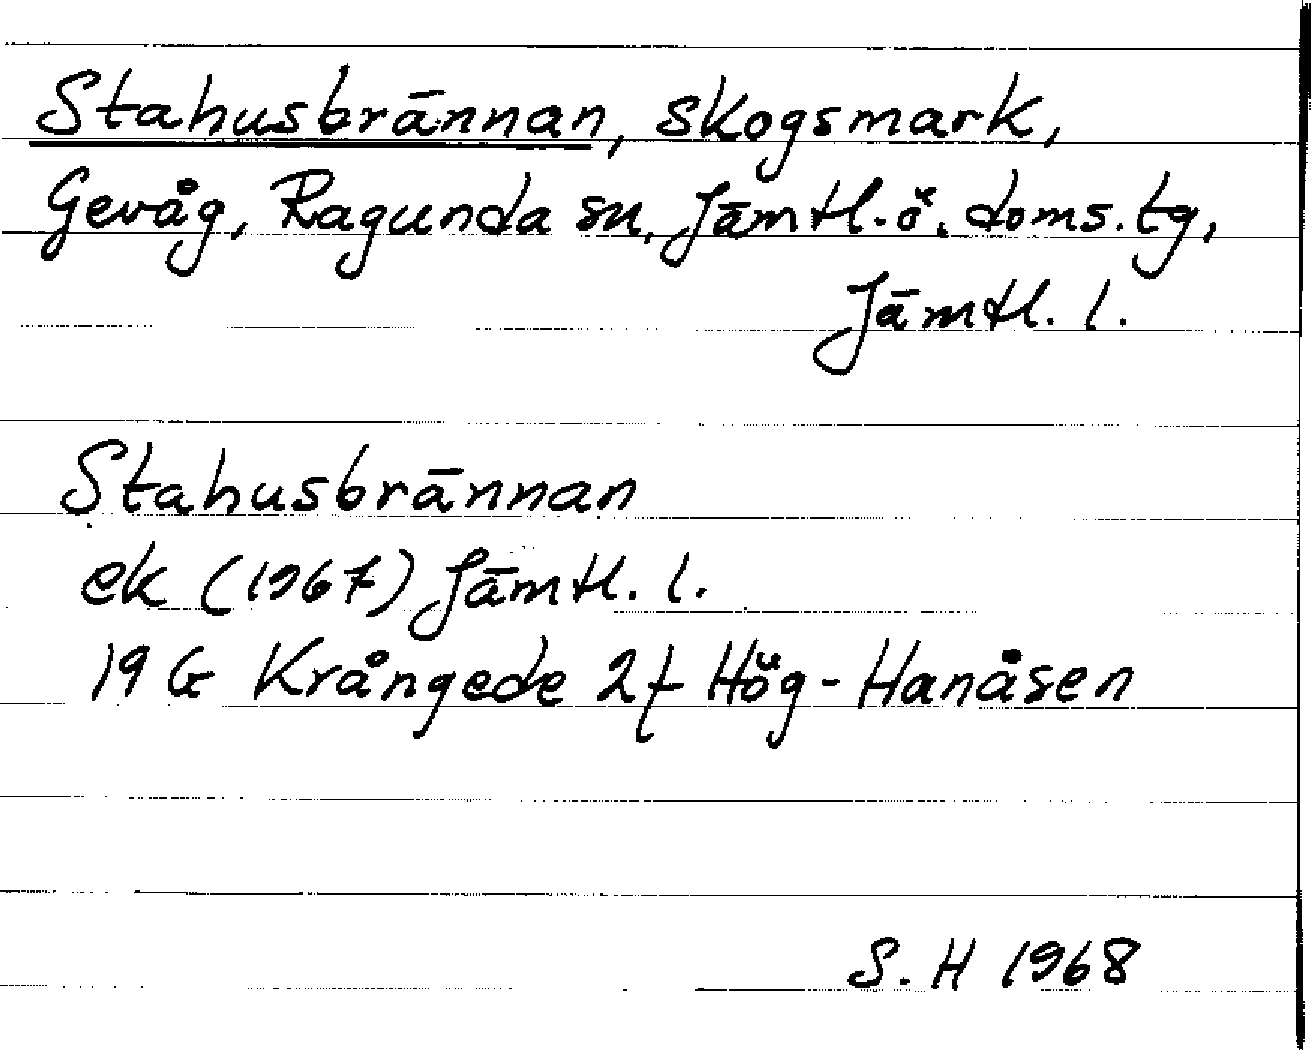 Stahusbrännan, skogsmark,
Gevåg, Ragunda sn, Jämtl. ö. doms. tg,
Jämtl. l.
Stahusbrännan
ek (1967) Jämtl. l.
19 G Krångede 2f Hög-Hanåsen
S. H 1968